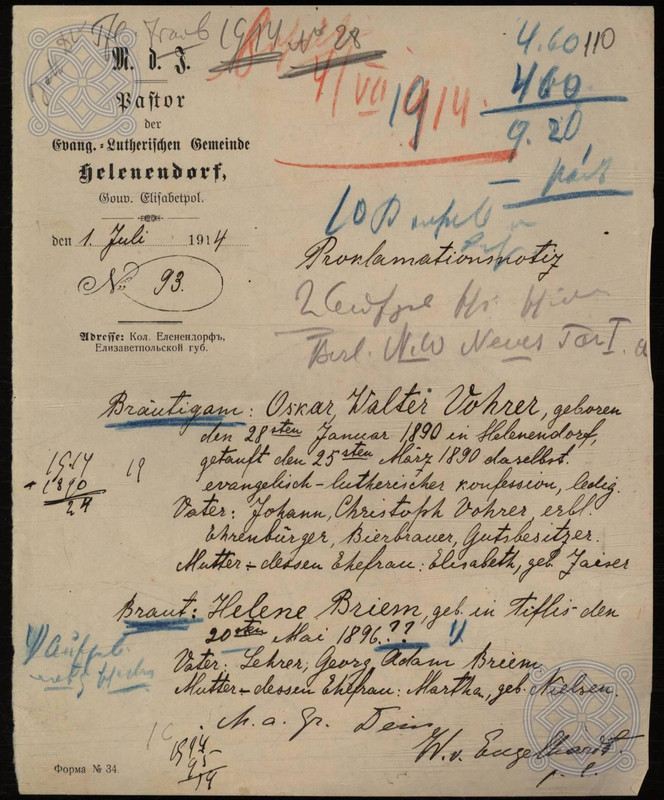 1914 № 28
M. d. J.
Pastor
der
Evang.-Lutherischen Gemeinde
Helenendorf,
Gouv. Elisabetpol.
den 1. Juli 1914
№ 93.
Adresse: Кол. Еленендорфъ,
Елизаветпольской губ.
4/VII 1914.
19
4.60
110
460
9.20
Proklamationsnotiz
Berl. N.W Neues Tor I.
Bräutigam: Oskar, Walter Vohrer, geboren
den 28sten Januar 1890 in Helenendorf,
getauft den 25sten März 1890 daselbst.
evangelisch-lutherischer Konfession, ledig.
Vater: Johann, Christoph Vohrer, erbl.
Ehrenbürger, Bierbrauer, Gutsbesitzer.
Mutter-dessen Ehefrau: Elisabeth, geb. Jaiser
1914
1890
24
19
Braut: Helene Briem, geb. in Tiflis den
20sten Mai 1896.??
Vater: Lehrer, Georg Adam Briem
Mutter-dessen Ehefrau: Martha, geb. Nielsen.
M. a. Gr.
W. v. Engelhardt.
Форма № 34